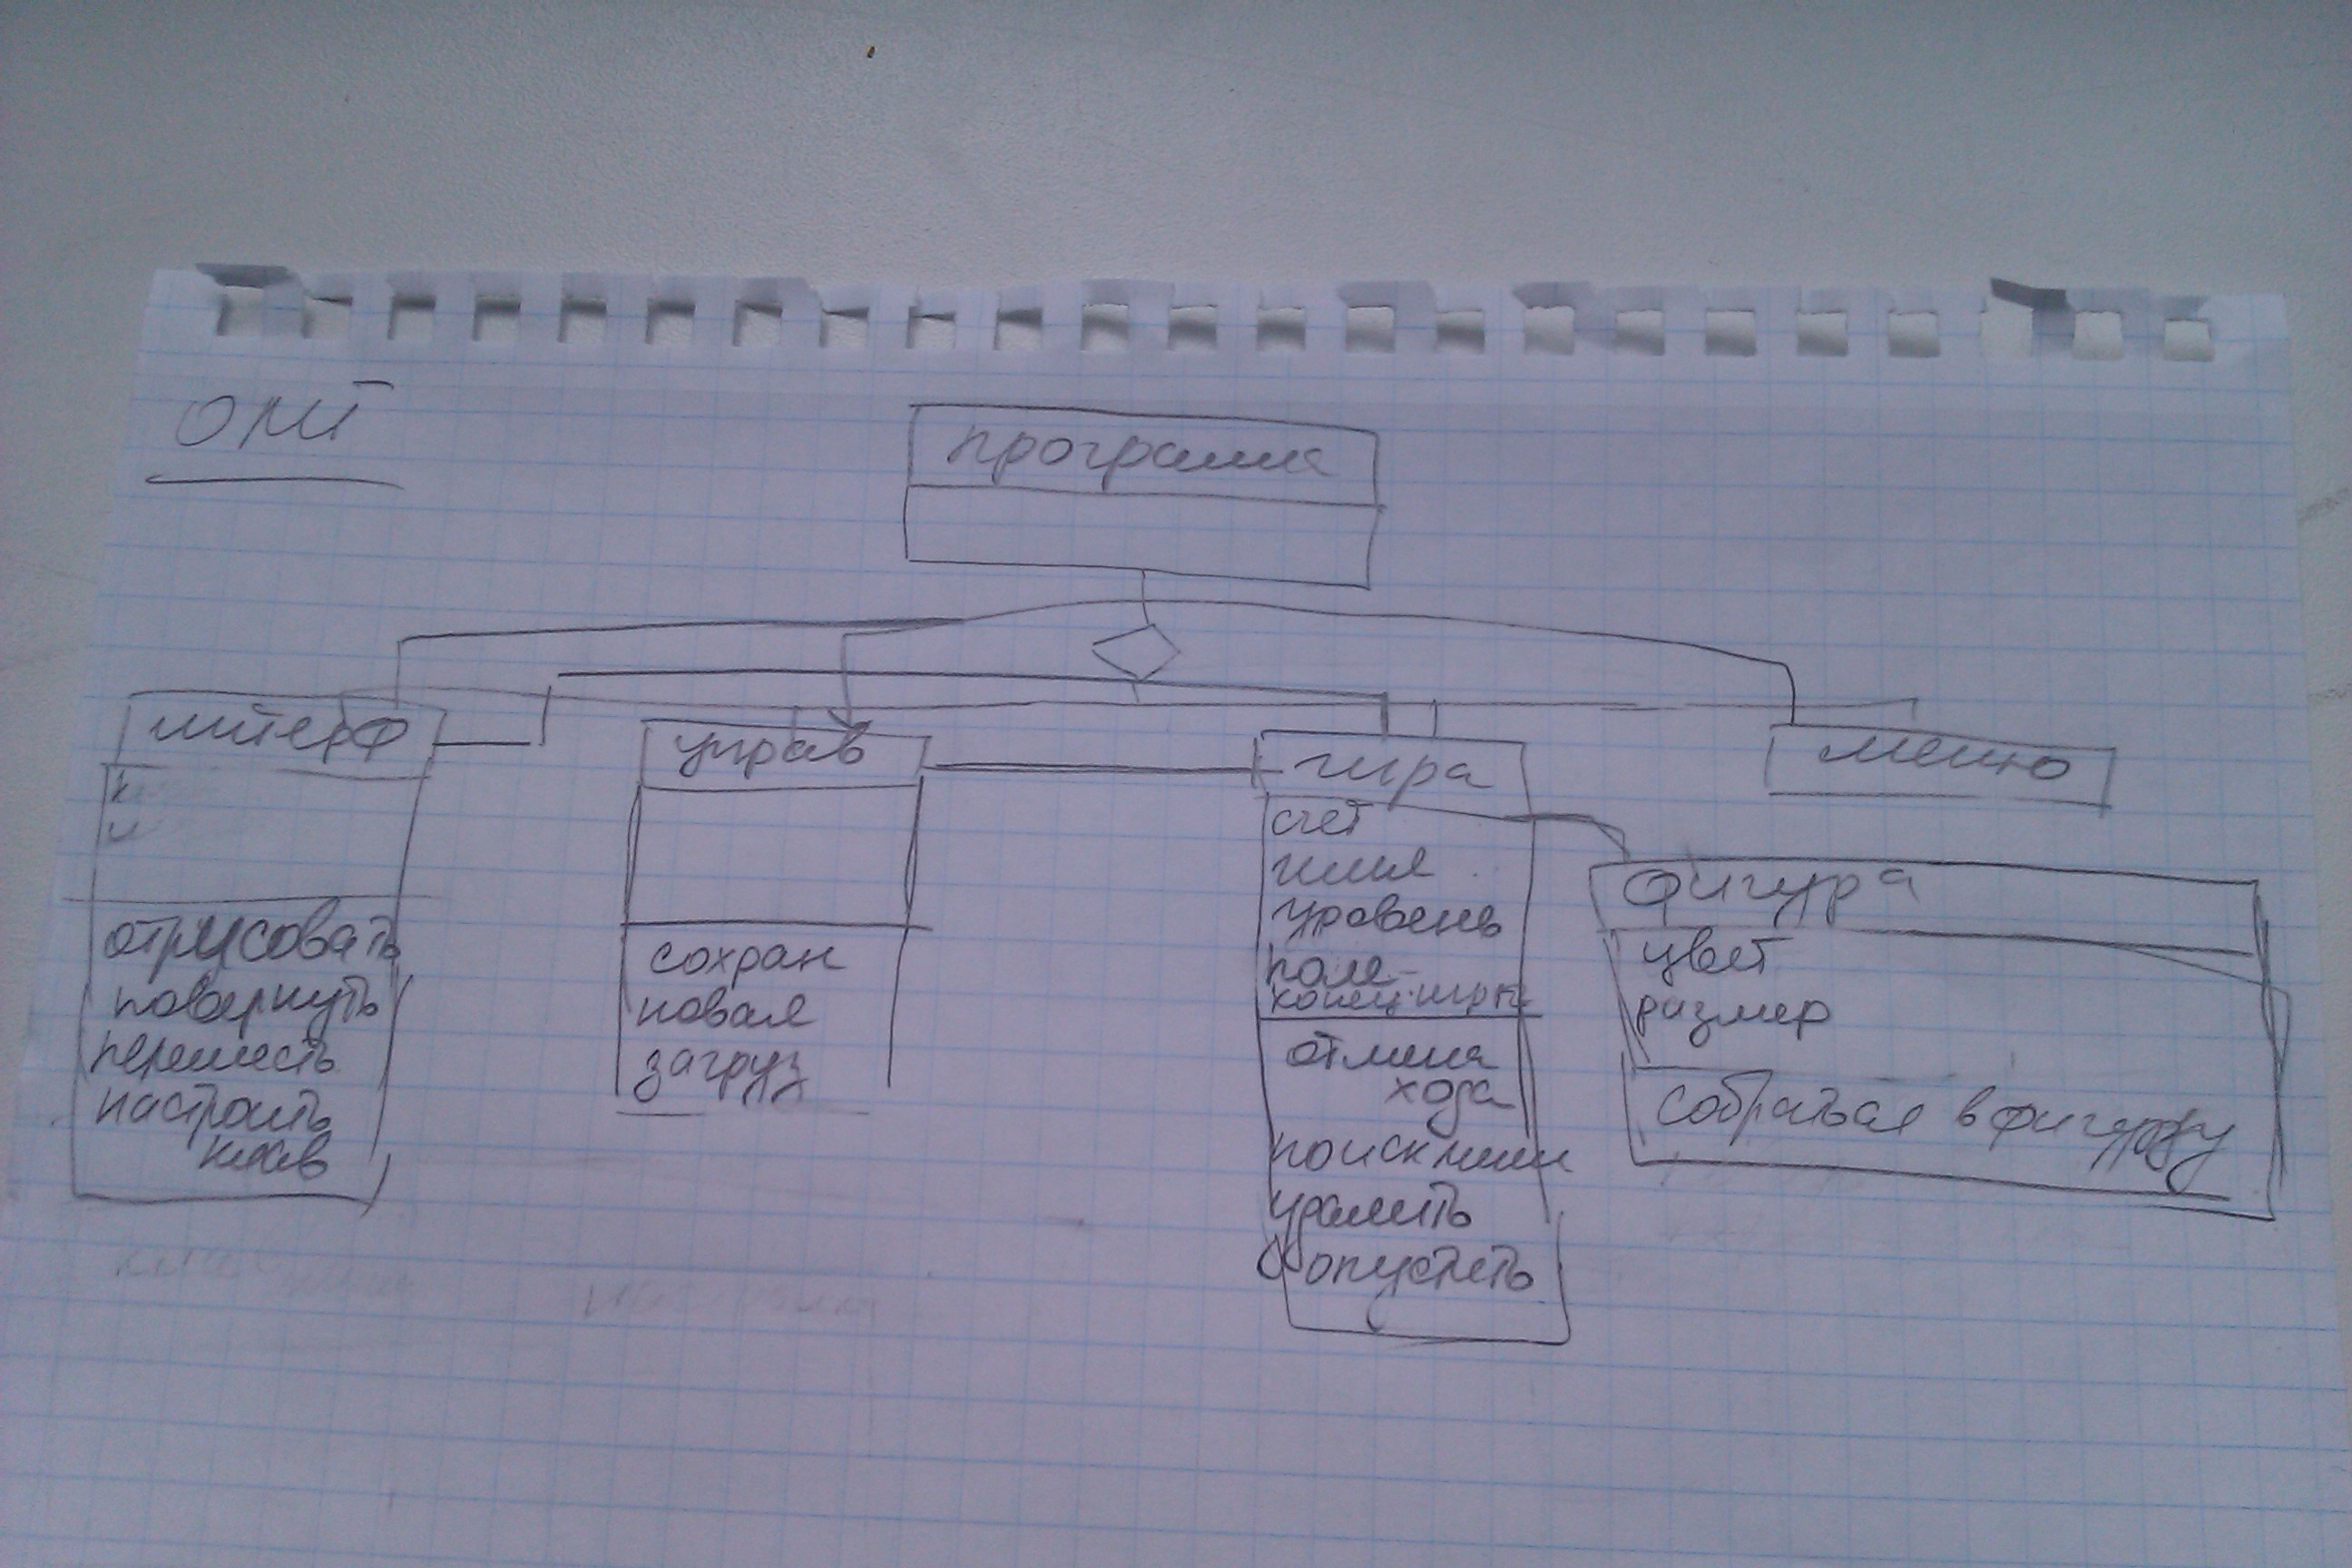 ОМТ
программа
интерф
отрисовать
повернуть
переместь
настроить
клав
управ
сохран
новая
загруз
игра
счёт
имя
уровень
поле
конец игры
отмена
хода
поиск линии
удалить
опустить
меню
фигура
цвет
размер
собраться в фигуру